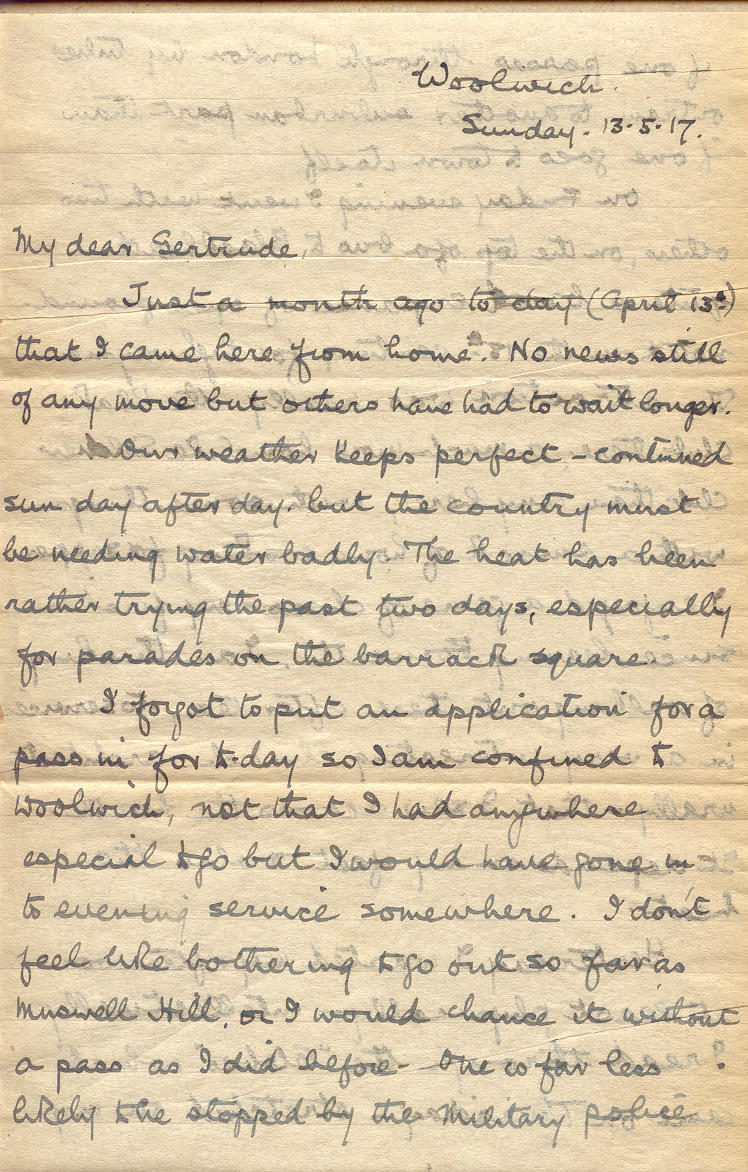 Woolwich.
Sunday. 13.5.17.
My dear Gertrude,
Just a month ago to day (April 13th)
that I came here from home. No news still
of any move but others have had to wait longer.
Our weather keeps perfect – continued
sun day after day. but the country must
be needing water badly. The heat has been
rather trying the past two days, especially
for parades on the barrack square.
I forgot to put an application for a
pass in for to-day so I am confined to
Woolwich, not that I had anywhere
especial to go but I would have gone in
to evening service somewhere. I don't
feel like bothering to go out so far as
Muswell Hill, or I would chance it without
a pass as I did before – One is far less
likely to be stopped by the Military police